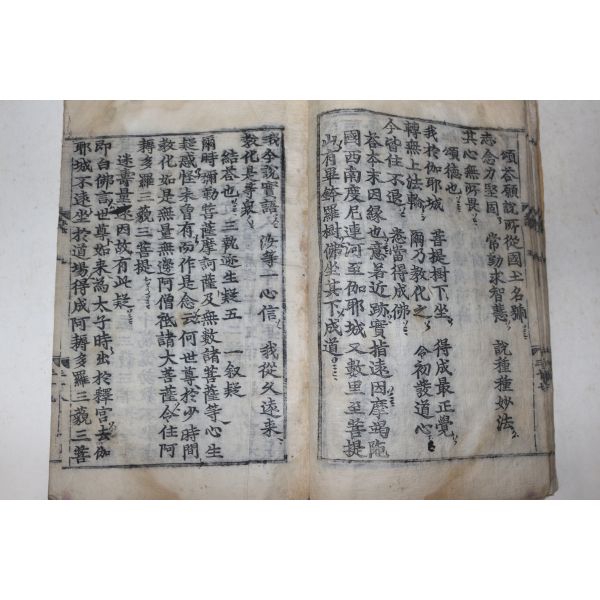 頌荅願說所從國土名號
志念力堅固　常勤求智慧　說種種妙法
其心無所畏
頌德也
我於伽耶城　菩提樹下坐　得成最正覺
轉無上法輪　爾乃教化之　令初發道心
今皆住不退　悉當得成佛
荅本末因緣也意荖近跡實指遠因摩竭陁
國西南度尼連河至伽耶城又數里至菩提
山有畢鉢羅樹佛坐其下成道
我今說實語　汝等一心信　我從久遠來
教化是等衆
結荅也　三執迹生疑五　一叙疑
爾時彌勒菩薩摩訶薩及無數諸菩薩等心生
疑惑怪未曾有而作是念云何世尊於少時間
教化如是無量無邊阿僧祇諸大菩薩令住阿
耨多羅三藐三菩提
迷壽量遠因故有此疑
即白佛言世尊如來爲太子時出於釋宫去伽
耶城不遠坐於道場得成阿耨多羅三藐三菩